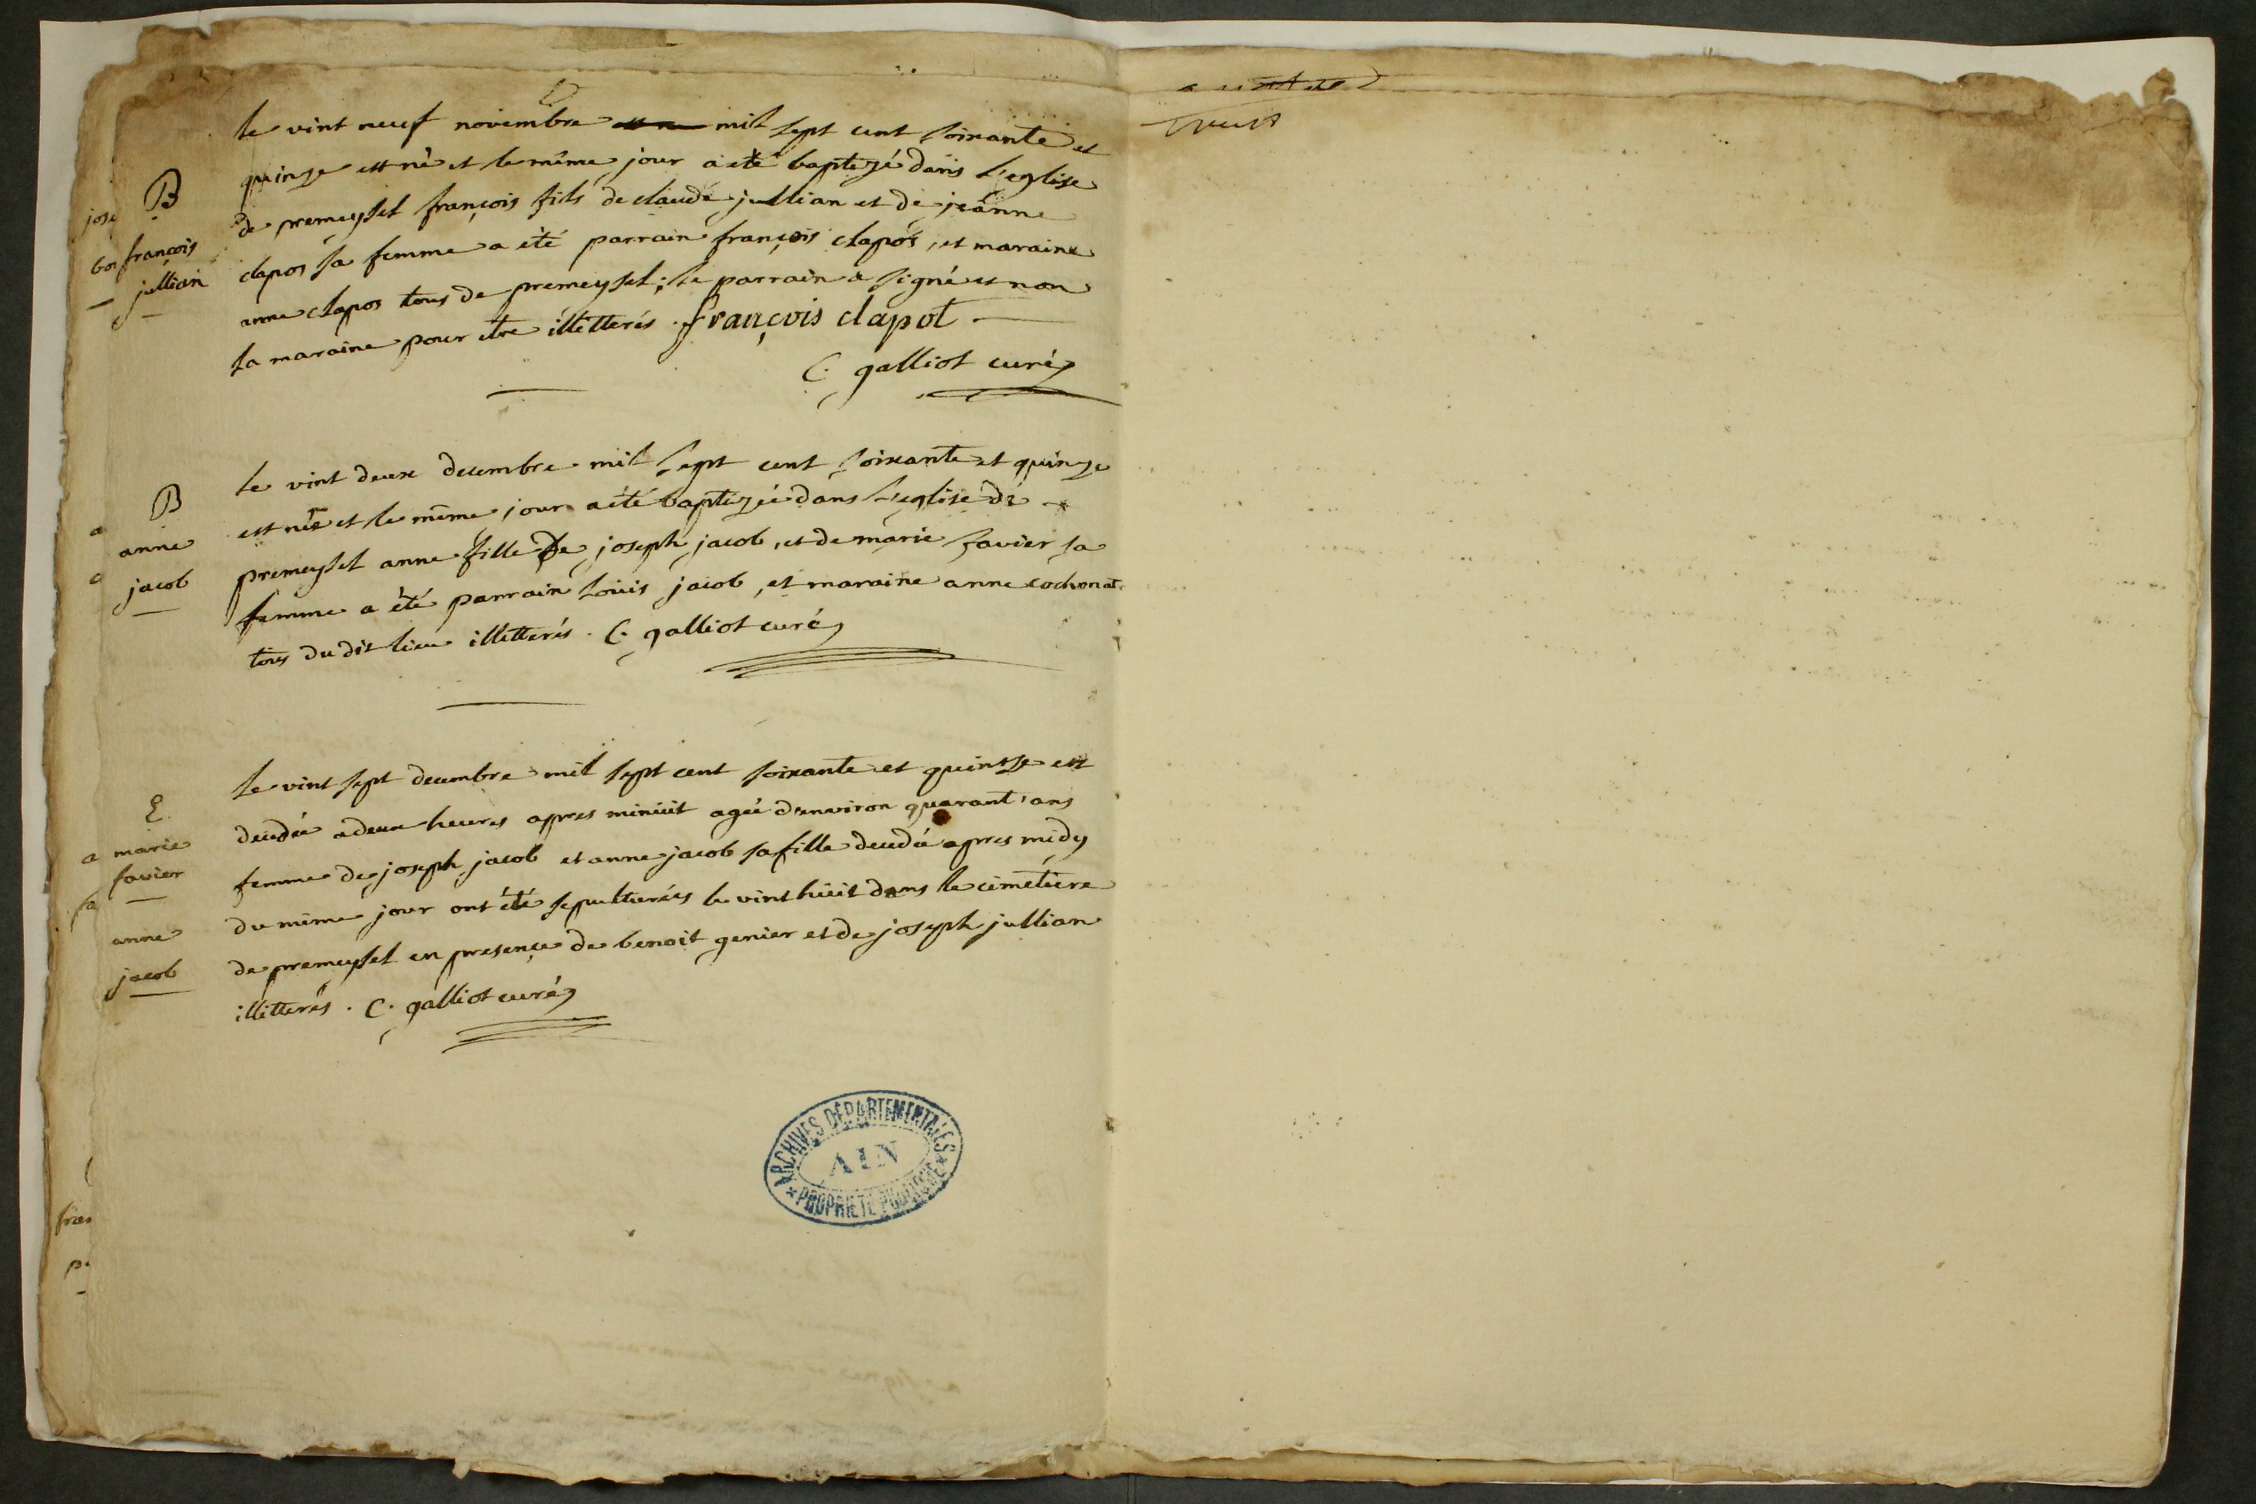 B
françois
jullian
le vint neuf novembre mil sept cent soixante et
quinze est né et le même jour a eté baptizé dans l'eglise
de premeyset françois fils de claude jullian et de jeanne
clapos sa femme a été parrain françois clapos, et maraine
anne clapos tous de premeyset; le parrain a signé et non
la maraine pour etre illetterés. françois clapot
C. galliot curé
B
anne
jacob
le vint deux decembre mil sept cent soixante et quinze
est née et le même jour a été baptizée dans l'eglise de
premeyset anne fille de joseph jacob, et de marie favier sa
femme a été parrain louis jacob, et maraine anne cochonat
tous du dit lieu illetterés. C. galliot curé
E
marie
favier
anne
jacob
le vint sept decembre mil sept cent soixante et quinze est
decedée a deux heures apres minuit agée d'environ quarant'ans
femme de joseph jacob et anne jacob sa fille decedée apres midy
du même jour ont été sepulturées le vint huit dans le cimetiere
de premeyset en presence de benoit genier et de joseph jullian
illetterés. C. galliot curé
ARCHIVES DÉPARTEMENTALES
AIN
PROPRIÉTÉ PUBLIQUE